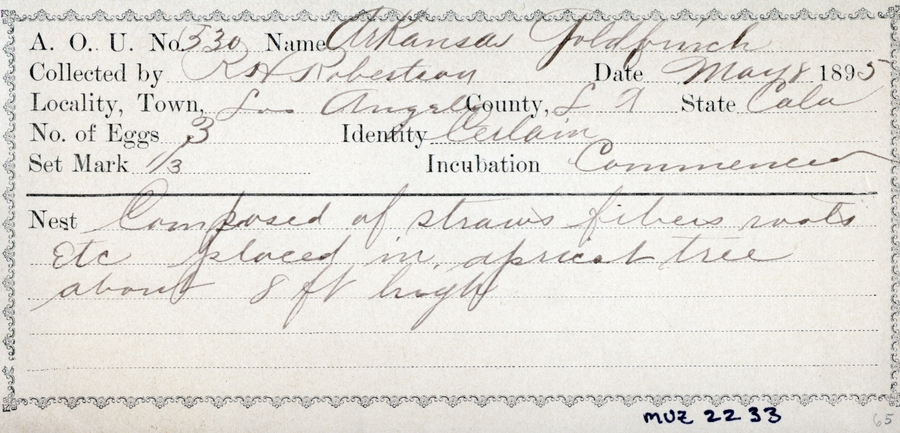 A. O. U. No. 530 Name Arkansas Goldfinch
Collected by R H Robertson Date May 8 1895
Locality, Town, Los Angeles County, L A State Cala
No. of Eggs 3 Identity Certain
Set Mark 1/3 Incubation Commenced
Nest Composed of straws fibers roots
Etc placed in apricot tree
about 8 ft high
MVZ 2233
65